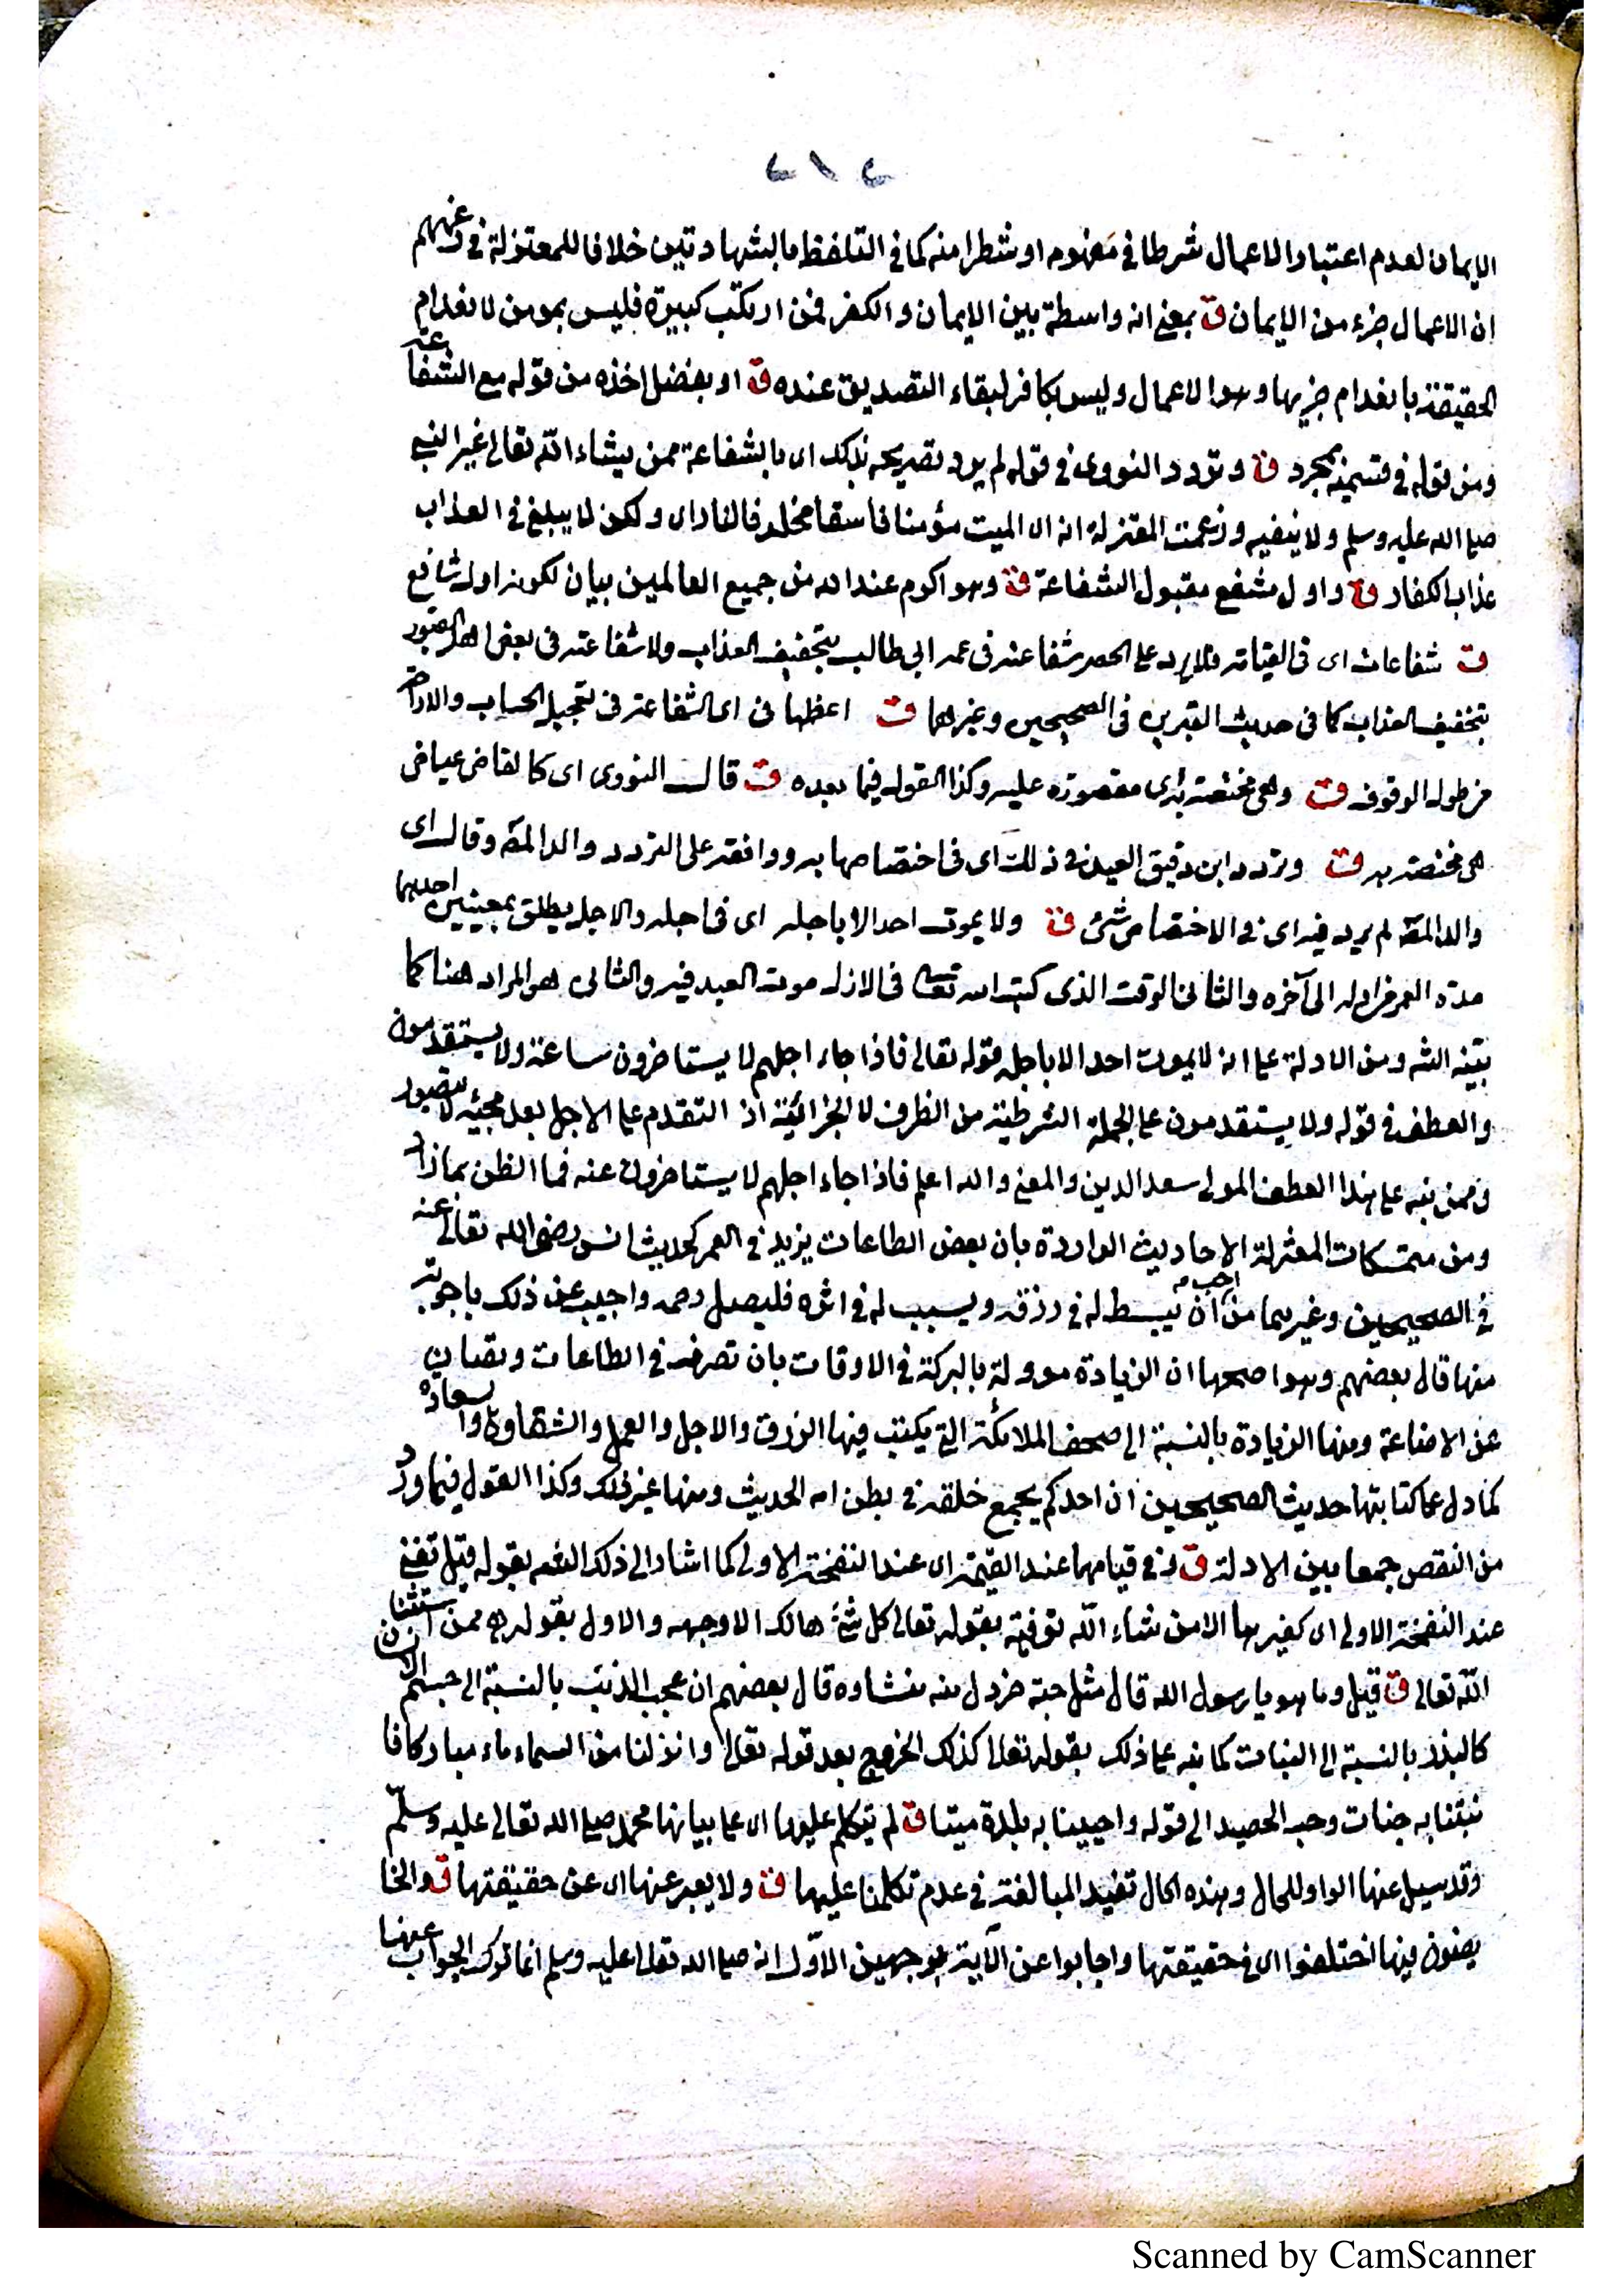 ٢١٢
الايمان لعدم اعتبار الاعمال شرطا في مفهومه او شطرا منه كما في التلفظ بالشهادتين خلافا للمعتزلة في زعمهم
ان الاعمال جزء من الايمان ق بمعنى انه واسطة بين الايمان والكفر فمن ارتكب كبيرة فليس بمومن لانعدام
الحقيقة بانعدام جزيها وهو الاعمال وليس بكافر لبقاء التصديق عنده ق او بفضل اخذه من قوله مع الشفاعة
ومن قوله في قسمه بمجرد ق وتردد النووي في قوله لم يرد تصريح بذلك اى بالشفاعة ممن يشاء الله تعالى غير النبي
صلى الله عليه وسلم ولا ينفيه وزعمت المعتزلة انه اى الميت مؤمنا فاسقا مخلد في النار اى ولكن لا يبلغ في العذاب
عذاب الكفار ق واول مشفع مقبول الشفاعة ق وهو اكرم عند الله من جميع العالمين بيان لكونه اول شافع
ق شفاعات اى في القيامة فلا يرد على الحصر شفاعته في عمه ابي طالب بتخفيف العذاب ولا شفاعته في بعض اهل القبور
بتخفيف العذاب كما في حديث القبرين في الصحيحين وغيرهما ق اعظمها في اى الشفاعة في تعجيل الحساب والاراحة
من طول الوقوف ق وهي مختصة به اى مقصورة عليه وكذا القول فيما بعده ق قال النووي اى كالقاضي عياض
هي مختصة به ق وتردد ابن دقيق العيد في ذلك اى في اختصاصها به ووافقه على التردد والد المص وقال اى
والد المص لم يرد فيه اى في الاختصاص شئ ق ولا يموت احد الا باجله اى في اجله والاجل يطلق بمعنيين احديهما
مدة العمر من اوله الى آخره والثاني الوقت الذى كتب الله تعالى في الازل موت العبد فيه والثاني هو المراد هنا كما
بينه الش ومن الادلة على انه لا يموت احد الا باجله قوله تعالى فاذا جاء اجلهم لا يستاخرون ساعة ولا يستقدمون
والعطف في قوله ولا يستقدمون على الجملة الشرطية من الظرف لا الجزائية اذ التقدم على الاجل بعد مجيئه لا يتصور
وممن نبه على هذا العطف المولى سعد الدين والمعنى والله اعلم فاذا جاء اجلهم لا يستاخرون عنه فما الظن بما زاد
ومن متمسكات المعتزلة الاحاديث الواردة بان بعض الطاعات يزيد في العمر كحديث انس رضى الله تعالى عنه
في الصحيحين وغيرهما من احب ان يبسط له في رزقه وينسب له في اثره فليصل رحمه واجيب عن ذلك باجوبة
منها قال بعضهم وهو اصحها ان الزيادة موولة بالبركة في الاوقات بان تصرف في الطاعات وتصان
عن الاضاعة ومنها الزيادة بالنسبة الى صحف الملائكة التي يكتب فيها الرزق والاجل والعمل والشقاوة والسعادة
كما دل على كتابتها حديث الصحيحين ان احدكم يجمع خلقه في بطن امه الحديث ومنها غير ذلك وكذا القول فيما ورد
من النقص جمعا بين الادلة ق وفي قيامها عند القيمة اى عند النفخة الاولى كما اشار الى ذلك المص بقوله قيل تفنى
عند النفخة الاولى اى كغيرها الا من شاء الله توفيه بقوله تعالى كل شئ هالك الا وجهه والاول بقوله هو ممن استثنا
الله تعالى ق قيل وما هو يا رسول الله قال مثل حبة خردل منه منشاوه قال بعضهم ان عجب الذنب بالنسبة الى جسم الانسان
كالبذر بالنسبة الى النبات كما نبه على ذلك بقوله تعالى كذلك الخروج بعد قوله تعالى وانزلنا من السماء ماء مباركا فا
نبتنا به جنات وحب الحصيد الى قوله واحيينا به بلدة ميتا ق لم يتكلم عليها اى على بيانها محمد صلى الله تعالى عليه وسلم
وقد سيل عنها الواو للحال وهذه الحال تفيد المبالغة في عدم تكلمنا عليها ق ولا يعبر عنها اى عن حقيقتها ق والخا
يضون فيها اختلفوا اى في حقيقتها واجابوا عن الآية بوجهين الاول انه صلى الله تعالى عليه وسلم انما ترك الجواب عنها
Scanned by CamScanner